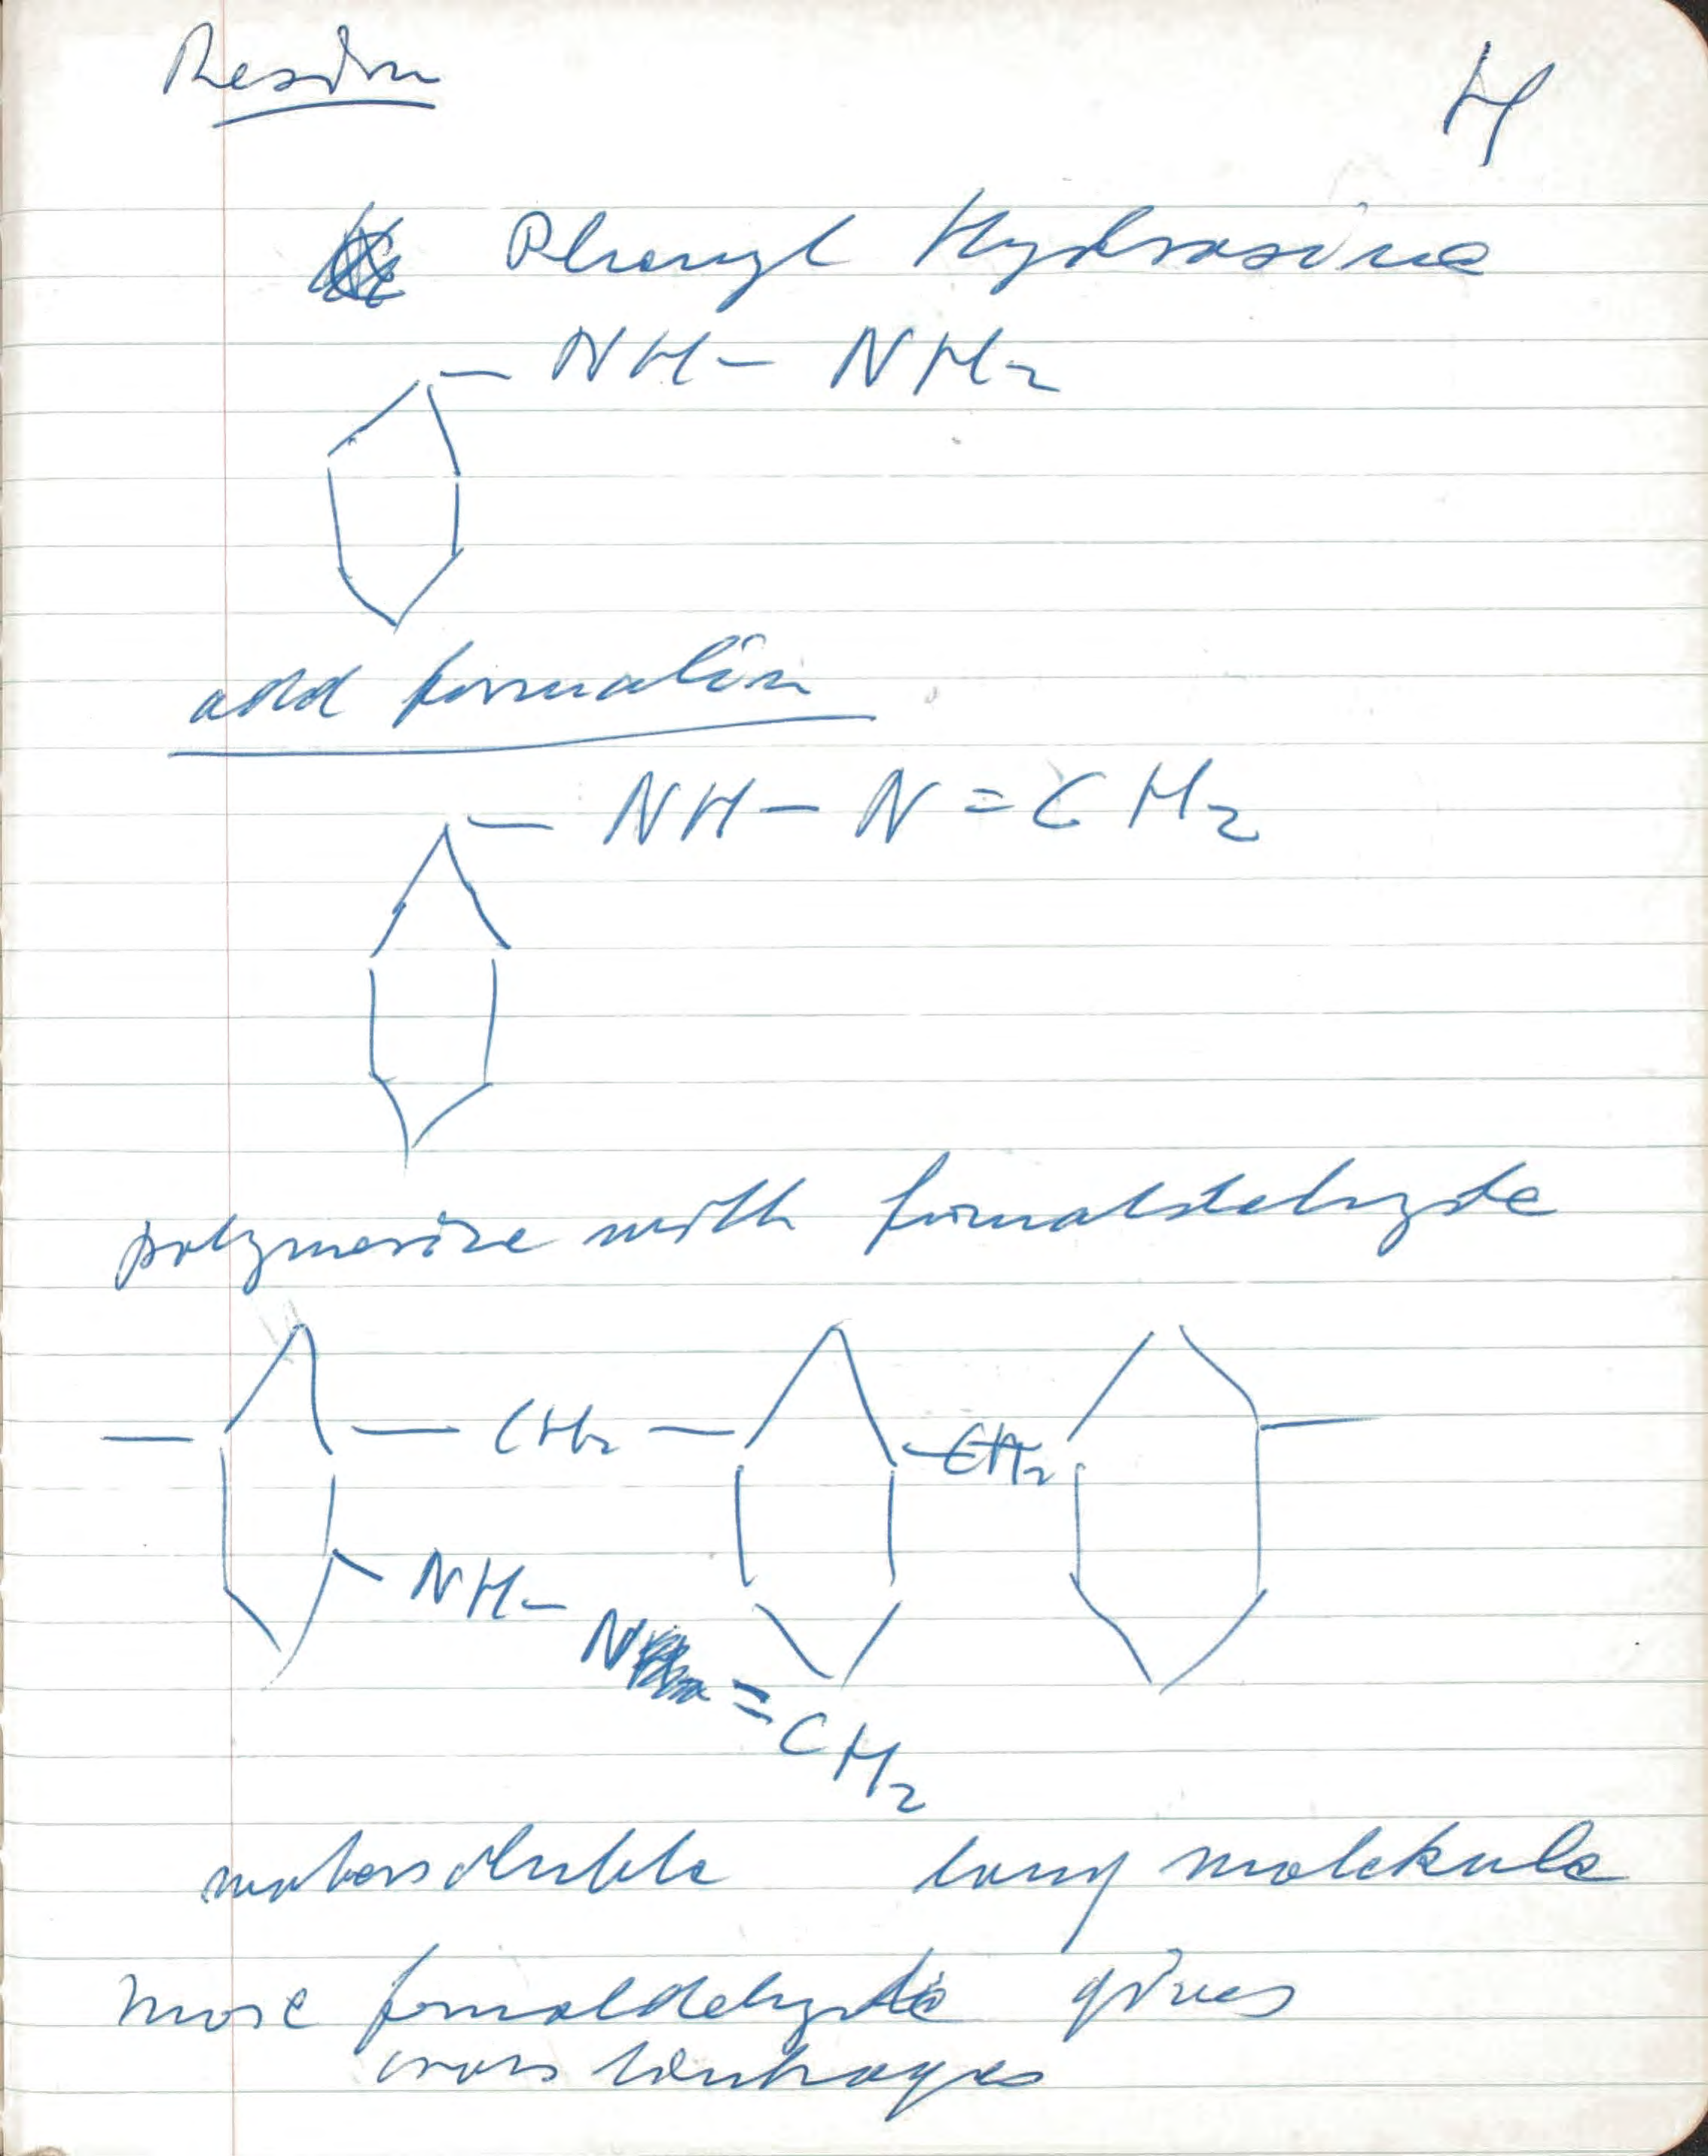 Resin
4
Phenyl Hydrasine
- NH - NH2
add formalin
- NH - N = CH2
polymerize with formaldehyde
- CH2 - - CH2
NH - N = CH2
watersoluble long molekule
more formaldehyde gives
cross linkages